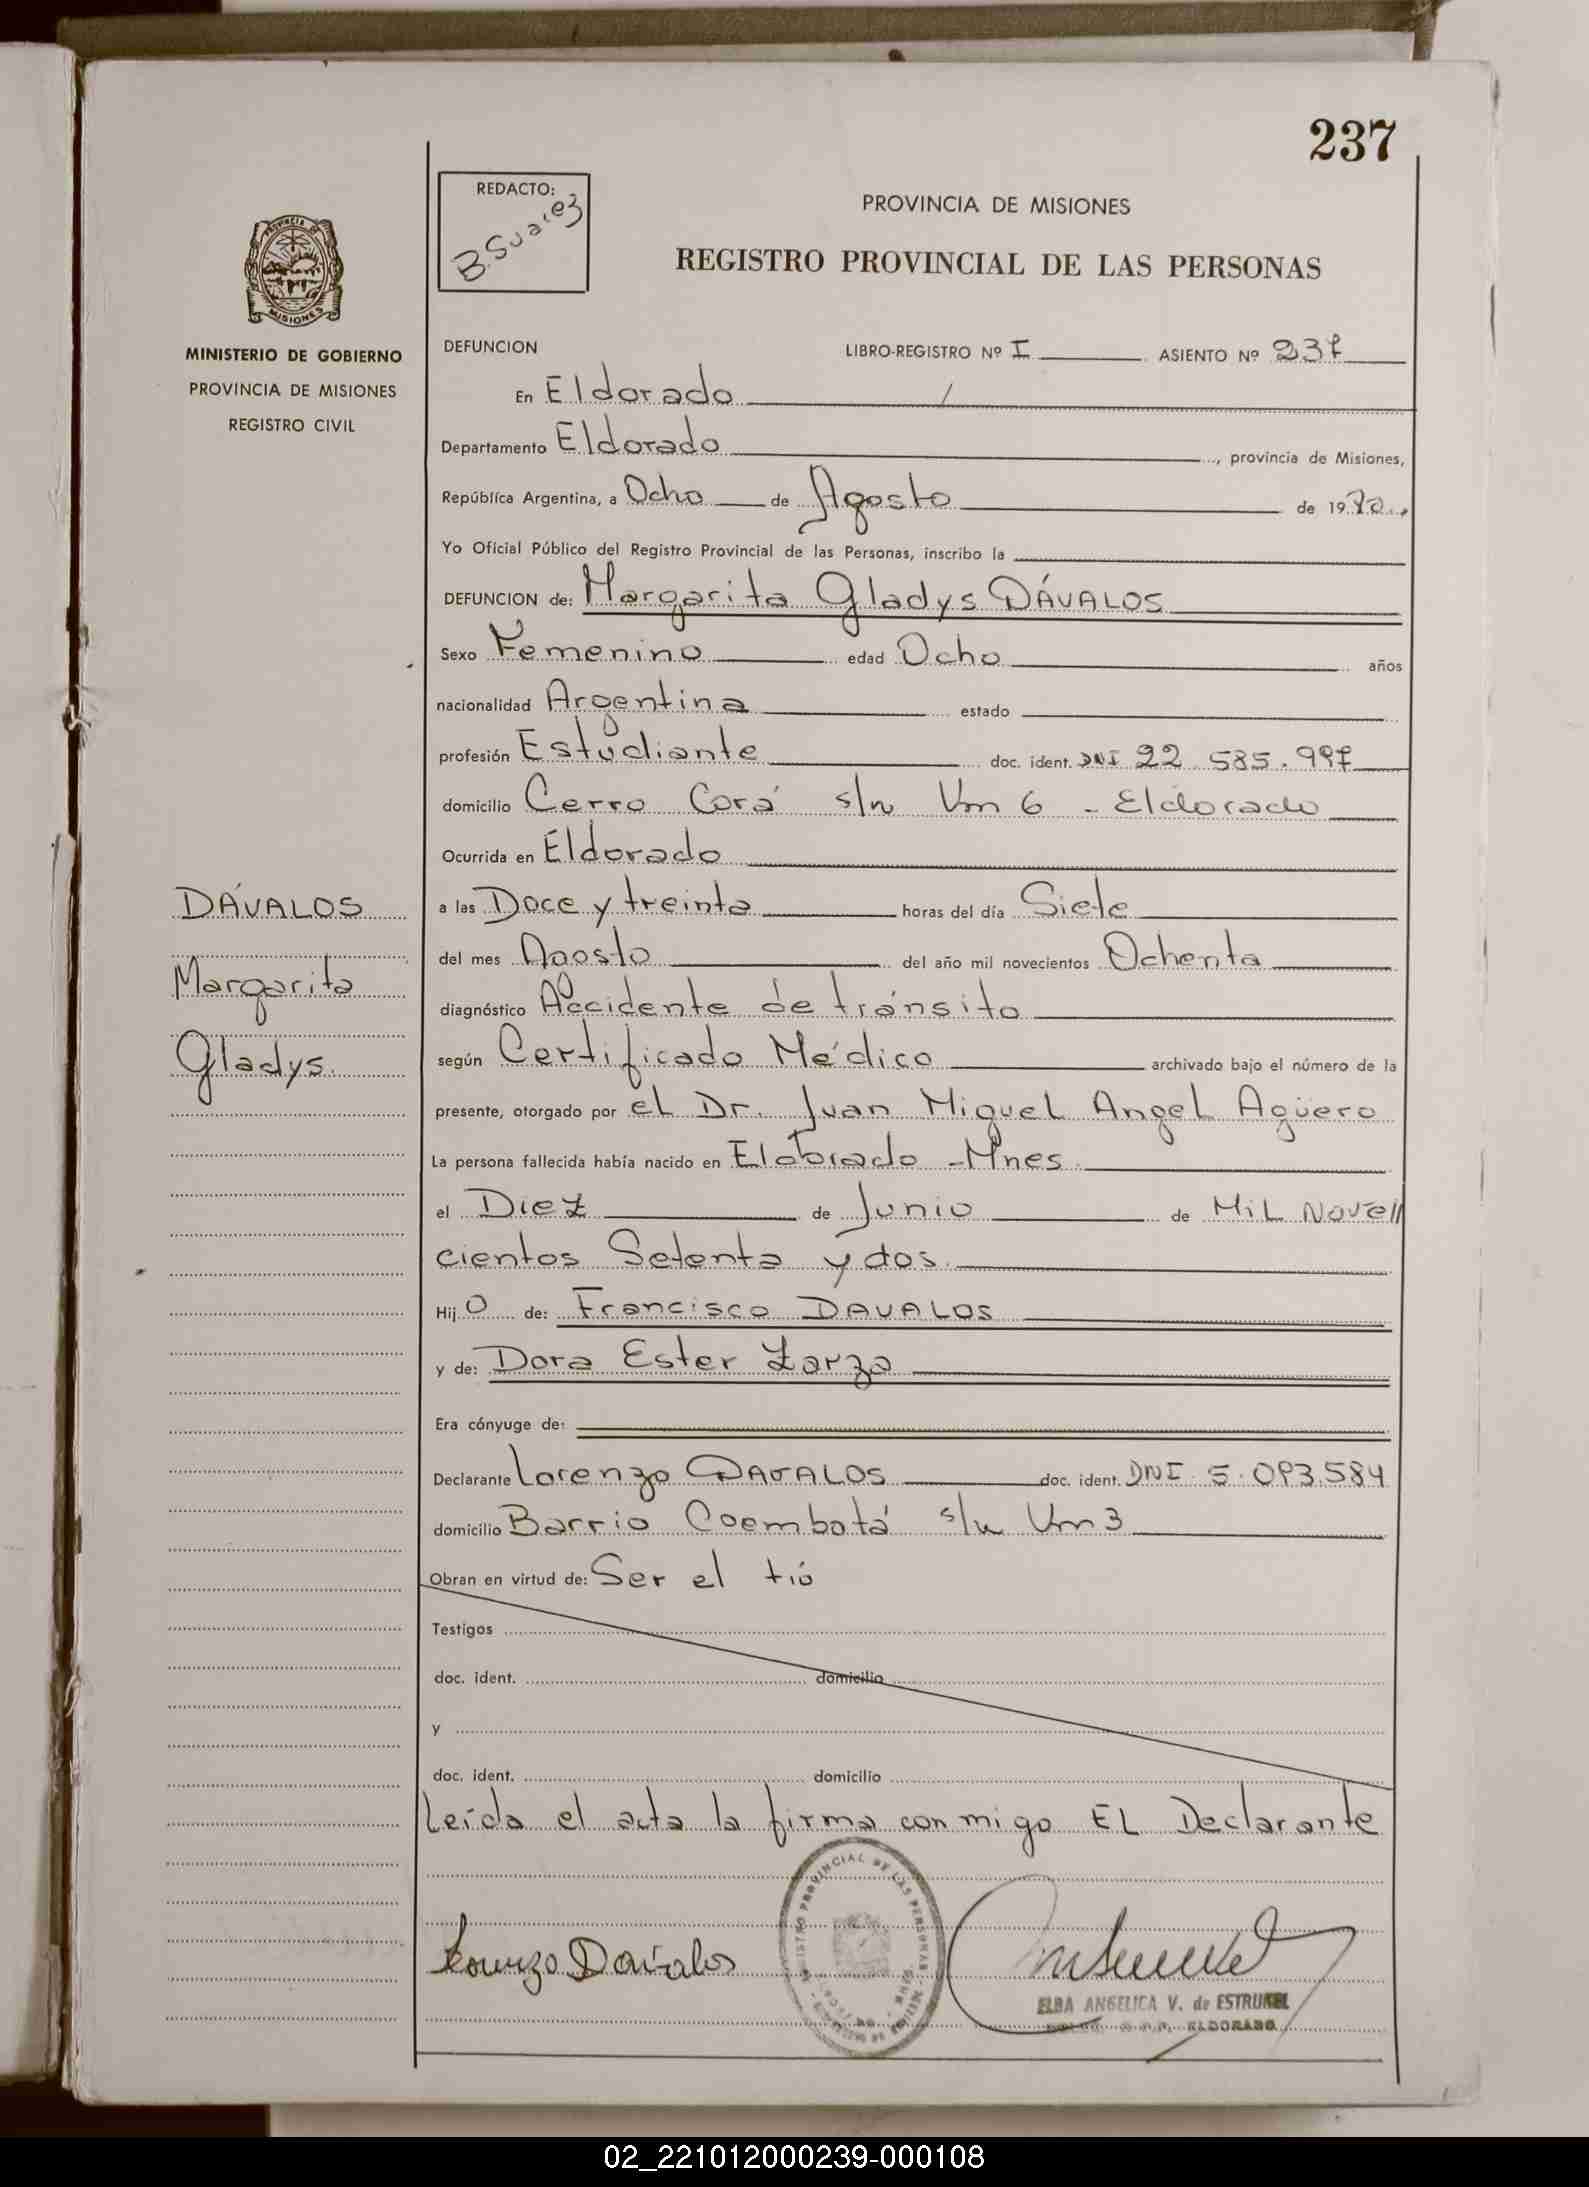 237
REDACTO:
B. Suarez
PROVINCIA DE MISIONES
REGISTRO PROVINCIAL DE LAS PERSONAS
MISIONES
MINISTERIO DE GOBIERNO
PROVINCIA DE MISIONES
REGISTRO CIVIL
DEFUNCION LIBRO-REGISTRO Nº I ASIENTO Nº 237
En Eldorado /
Departamento Eldorado , provincia de Misiones,
República Argentina, a Ocho de Agosto de 19
Yo Oficial Público del Registro Provincial de las Personas, inscribo la
DEFUNCION de: Margarita Gladys DÁVALOS
Sexo Femenino edad Ocho años
nacionalidad Argentina estado
profesión Estudiante doc. ident. DNI 22 585.997
domicilio Cerro Corá s/n Km 6 - Eldorado
Ocurrida en Eldorado
a las Doce y treinta horas del día Siete
del mes Agosto del año mil novecientos Ochenta
diagnóstico Accidente de tránsito
según Certificado Médico archivado bajo el número de la
presente, otorgado por el Dr. Juan Miguel Angel Agüero
La persona fallecida había nacido en Eldorado - Mnes.
el Diez de Junio de MiL Nove//
cientos Setenta y dos.
Hij o de: Francisco DAVALOS
y de: Dora Ester Zarza
Era cónyuge de:
Declarante Lorenzo DAVALOS doc. ident. DNI 5.093.584
domicilio Barrio Coembotá s/n Km 3
Obran en virtud de: Ser el tió
Testigos
doc. ident. domicilio
y
doc. ident. domicilio
Leída el acta la firma conmigo EL Declarante
DÁVALOS
Margarita
Gladys.
Lorenzo Davalos
REGISTRO PROVINCIAL DE LAS PERSONAS
ELBA ANGELICA V. de ESTRUKEL
ELDORADO
02_221012000239-000108